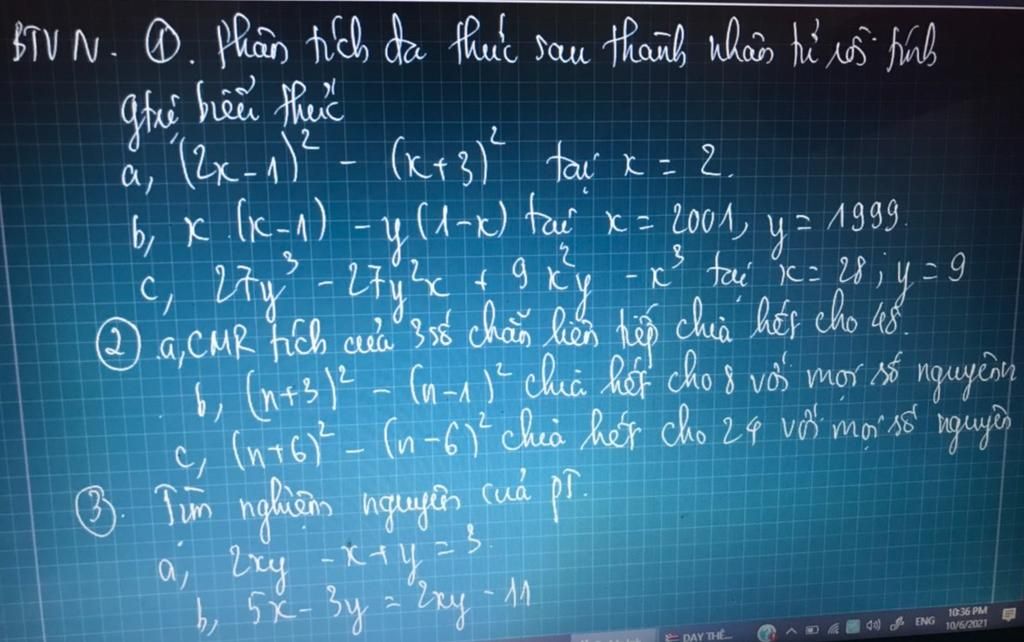 BTVN. ①. Phân tích đa thức sau thành nhân tử rồi tính
gtrị biểu thức
a, (2x-1)² - (x+3)² tại x = 2.
b, x.(x-1) - y(1-x) tại x = 2001, y = 1999.
c, 27y³ - 27y²x + 9x²y - x³ tại x = 28; y = 9
② a, CMR tích của 3 số chẵn liên tiếp chia hết cho 48.
b, (n+3)² - (n-1)² chia hết cho 8 với mọi số nguyên n
c, (n+6)² - (n-6)² chia hết cho 24 với mọi số nguyên
③. Tìm nghiệm nguyên của pT.
a, 2xy - x + y = 3.
b, 5x - 3y = 2xy - 11
DAY THÊ...
ENG
10:36 PM
10/6/2021